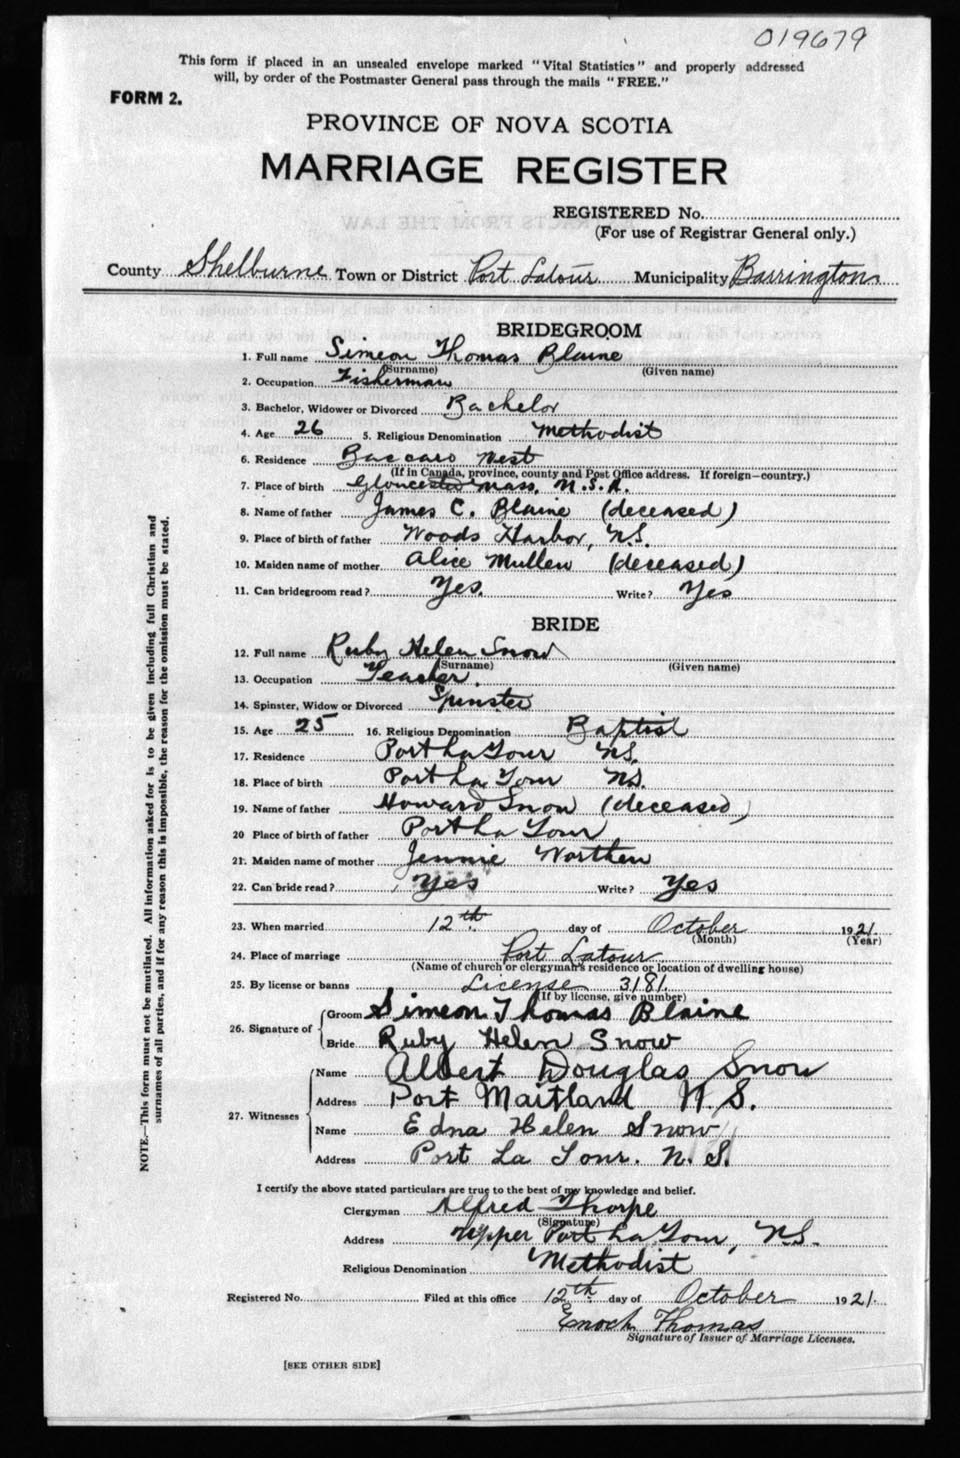 019679
This form if placed in an unsealed envelope marked "Vital Statistics" and properly addressed
will, by order of the Postmaster General pass through the mails "FREE."
FORM 2.
PROVINCE OF NOVA SCOTIA
MARRIAGE REGISTER
REGISTERED No.
(For use of Registrar General only.)
County Shelburne Town or District Port Latour Municipality Barrington
BRIDEGROOM
1. Full name Simeon Thomas Blaine
(Surname) (Given name)
2. Occupation Fisherman
3. Bachelor, Widower or Divorced Bachelor
4. Age 26 5. Religious Denomination Methodist
6. Residence Baccaro West
(If in Canada, province, county and Post Office address. If foreign—country.)
7. Place of birth Gloucester Mass. U.S.A.
8. Name of father James C. Blaine (deceased)
9. Place of birth of father Woods Harbor, N.S.
10. Maiden name of mother Alice Mullen (deceased)
11. Can bridegroom read? Yes. Write? Yes
BRIDE
12. Full name Ruby Helen Snow
(Surname) (Given name)
13. Occupation Teacher.
14. Spinster, Widow or Divorced Spinster
15. Age 25 16. Religious Denomination Baptist
17. Residence Port La Tour N.S.
18. Place of birth Port La Tour N.S.
19. Name of father Howard Snow (deceased)
20 Place of birth of father Port La Tour
21. Maiden name of mother Jennie Worthen
22. Can bride read? Yes Write? Yes
23. When married 12th day of October 1921.
(Month) (Year)
24. Place of marriage Port Latour
(Name of church or clergyman's residence or location of dwelling house)
25. By license or banns License 3181.
(If by license, give number)
26. Signature of Groom Simeon Thomas Blaine
Bride Ruby Helen Snow
27. Witnesses Name Albert Douglas Snow
Address Port Maitland N.S.
Name Edna Helen Snow
Address Port La Tour. N.S.
I certify the above stated particulars are true to the best of my knowledge and belief.
Clergyman Alfred Thorpe
(Signature)
Address Upper Port La Tour, N.S.
Religious Denomination Methodist
Registered No. Filed at this office 12th day of October 1921.
Enoch Thomas
Signature of Issuer of Marriage Licenses.
[SEE OTHER SIDE]
NOTE.—This form must not be mutilated. All information asked for is to be given including full Christian and
surnames of all parties, and if for any reason this is impossible, the reason for the omission must be stated.